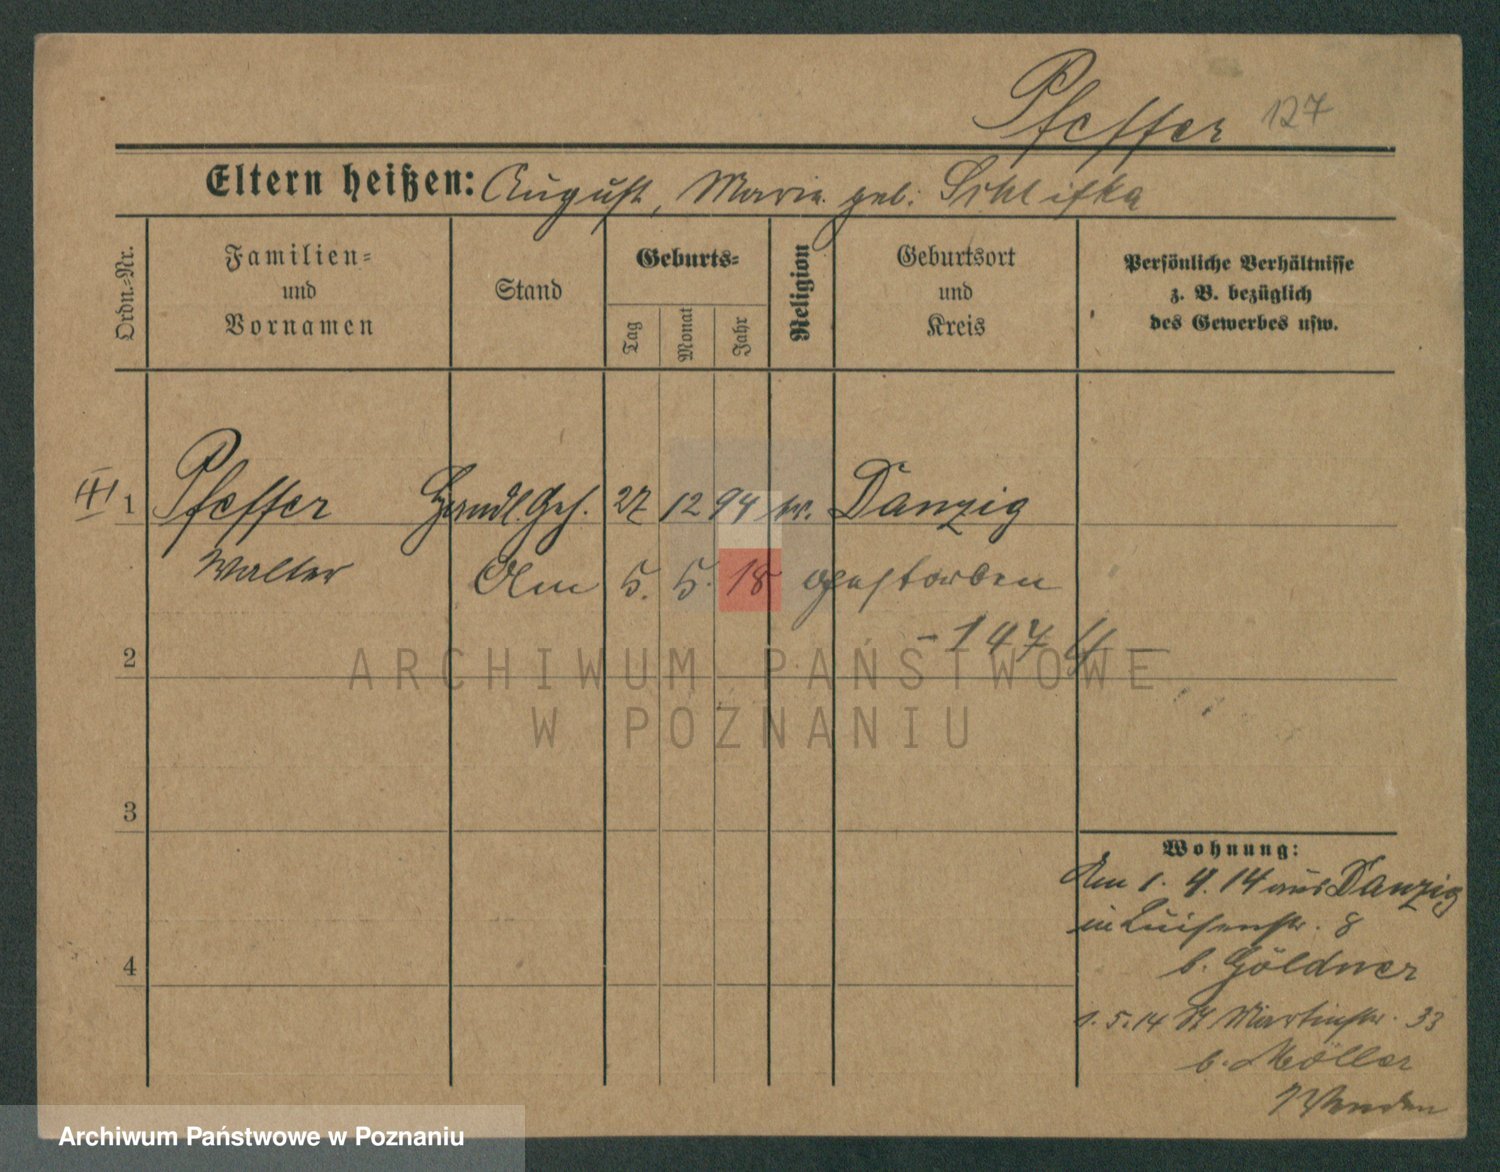 Pfeffer 127
Eltern heißen: August, Marie geb. Schlifka
Ordn.-Nr.
Familien-
und
Vornamen
Stand
Geburts-
Tag
Monat
Jahr
Religion
Geburtsort
und
Kreis
Persönliche Verhältnisse
z. B. bezüglich
des Gewerbes usw.
1 Pfeffer Handl. Geh. 27 12 94 ev. Danzig
Walter Am 5. 5. 18 gestorben
2
3
4
Wohnung:
Am 1. 4. 14 aus Danzig
in Luisenstr. 8
b. Göldner
1. 5. 14 St Martinstr. 33
b. Möller
Wenden
ARCHIWUM PAŃSTWOWE
W POZNANIU
Archiwum Państwowe w Poznaniu